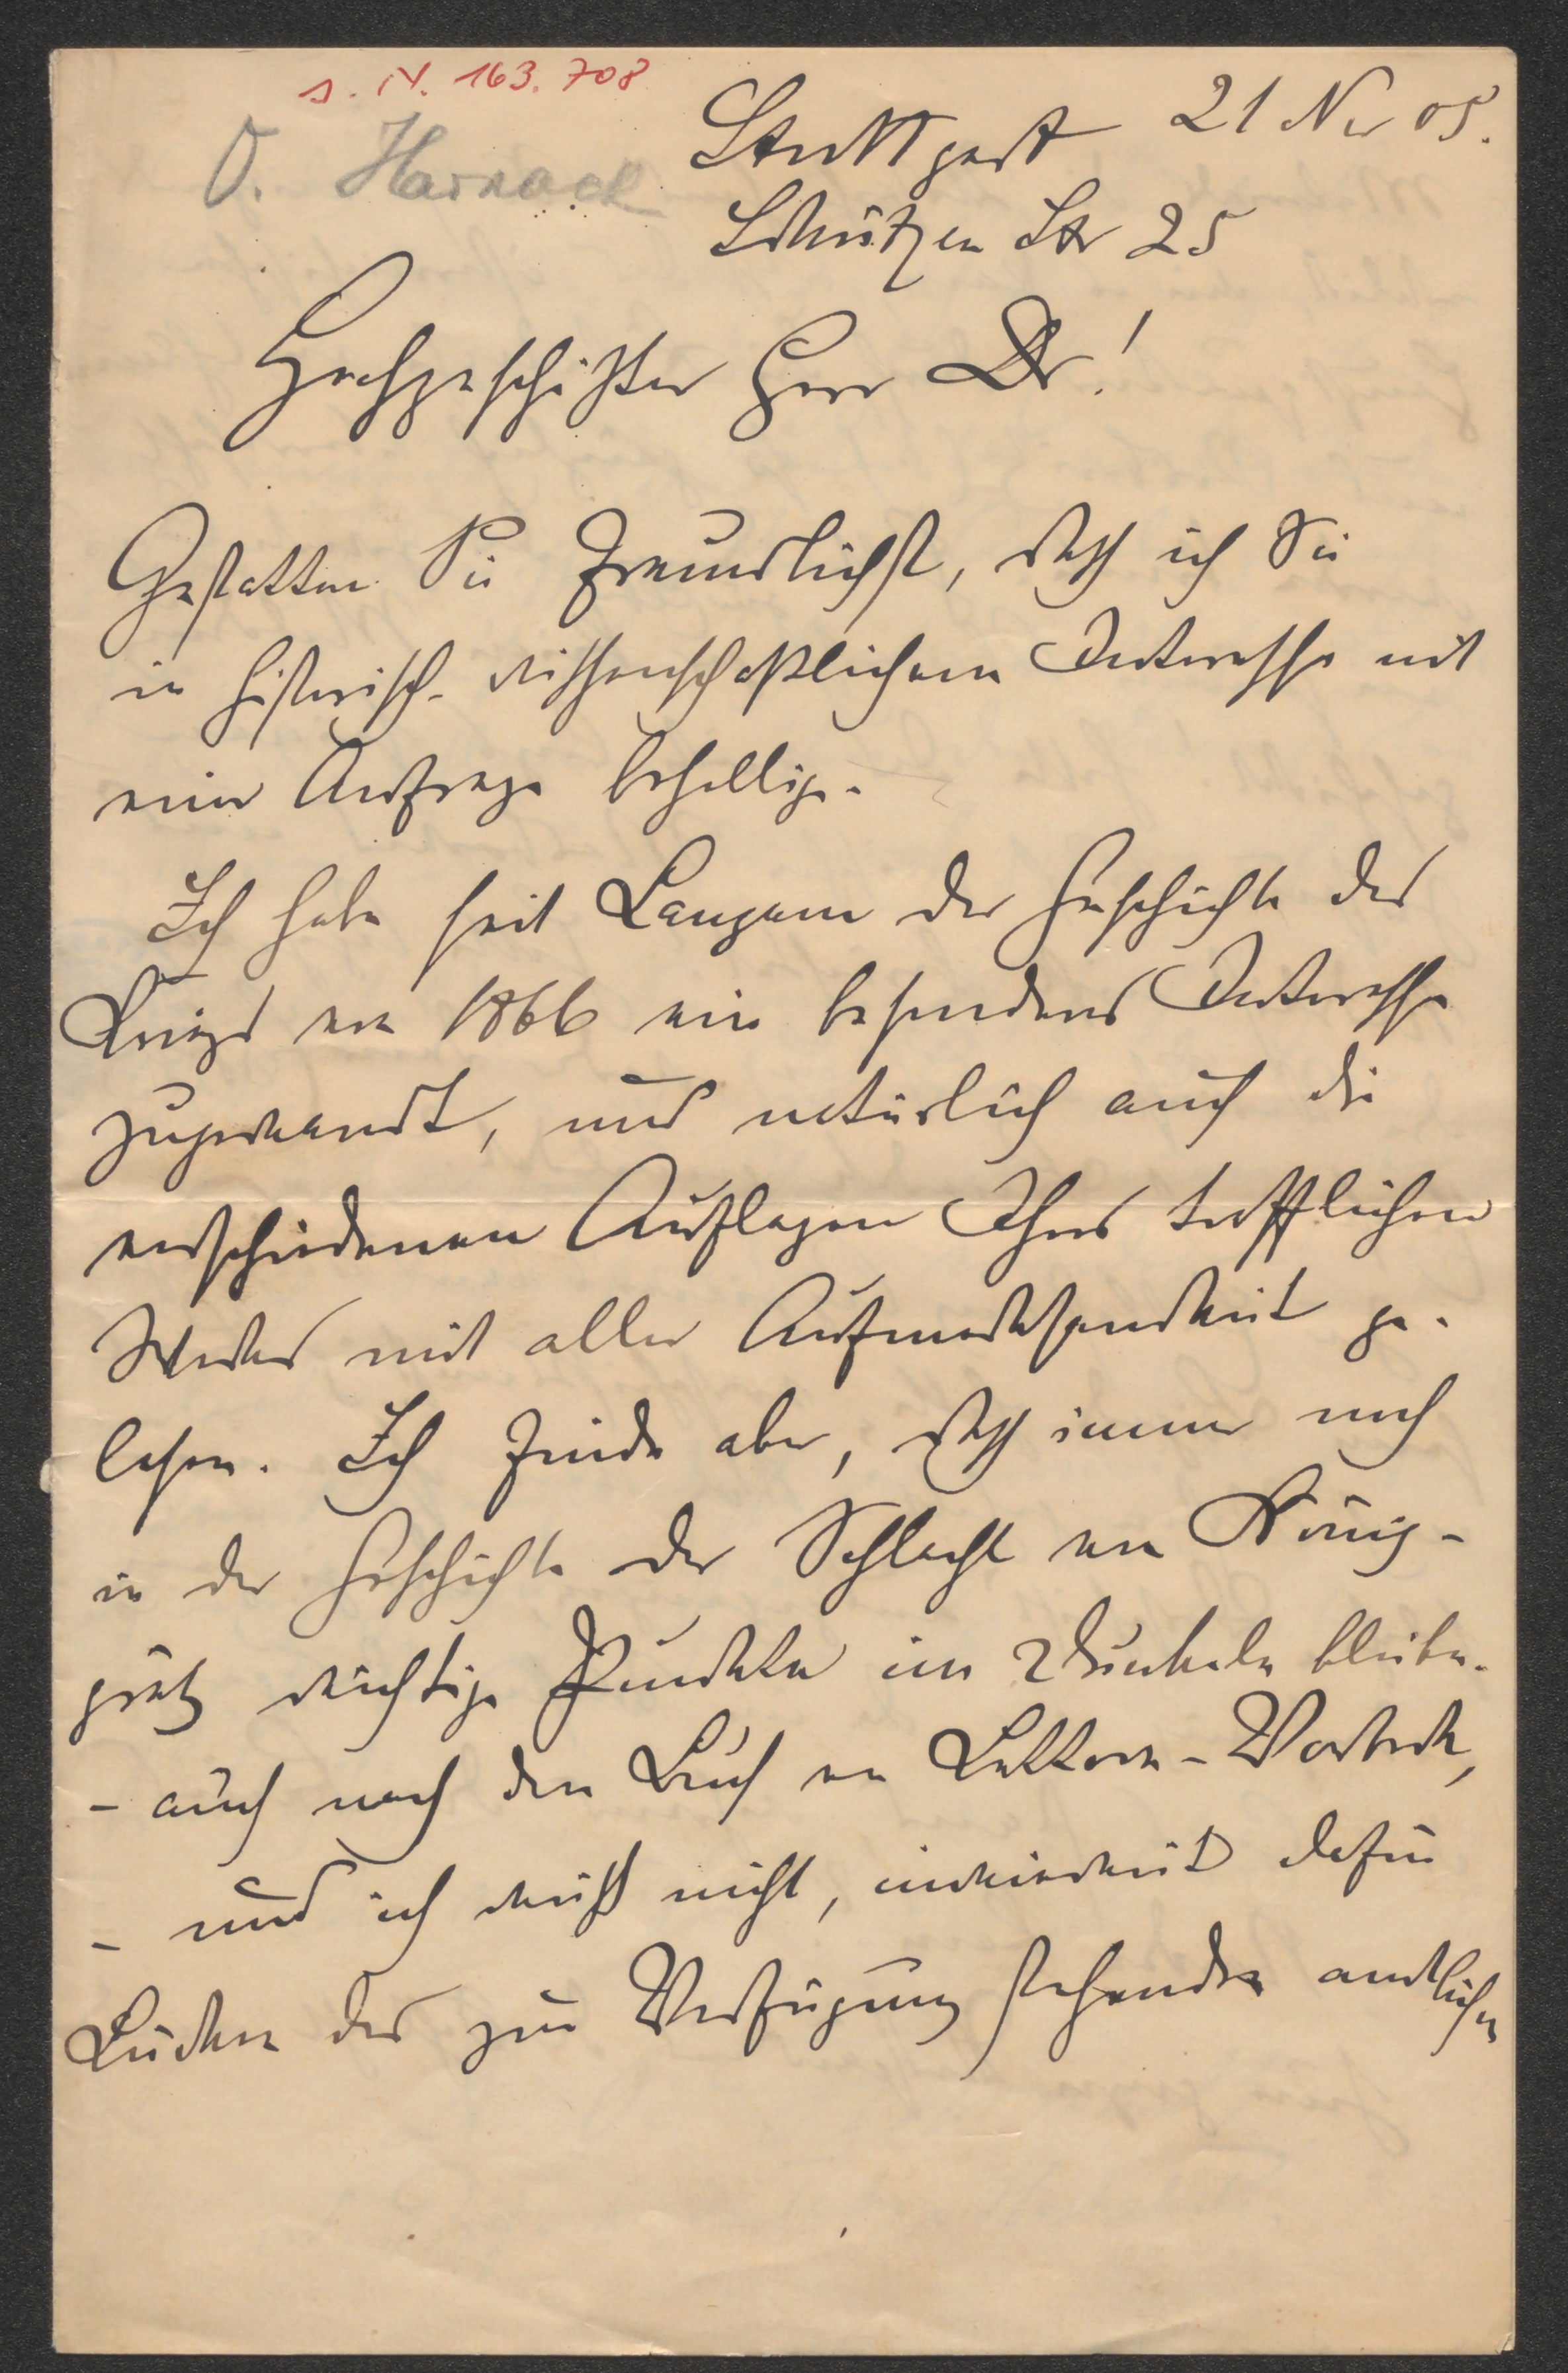 s. N. 163.708
O. Harnack
Stuttgart 21 Nov 05.
Schützen Str 25
Hochgeschätzter Herr Dr!
Gestatten Sie freundlichst, daß ich Sie
in historisch-wissenschaftlichem Interesse mit
einer Anfrage behellige.
Ich habe seit Langem der Geschichte des
Kriegs von 1866 ein besonderes Interesse
zugewandt, und natürlich auch die
verschiedenen Auflagen Ihres trefflichen
Werkes mit aller Aufmerksamkeit ge-
lesen. Ich finde aber, daß immer noch
in der Geschichte der Schlacht von König-
grätz wichtige Punkte im Dunkeln bleiben
- auch nach dem Buch von Lettow-Vorbeck,
- und ich weiß nicht, inwieweit dafür
Lücken des zur Verfügung stehenden amtlichen